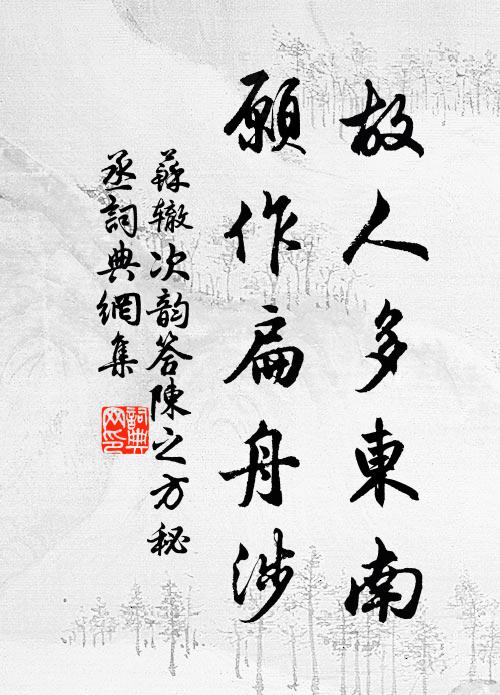 故人多東南
願作扁舟涉
蘇轍次韵答陳之方秘
丞詞典網集
詞典
网印